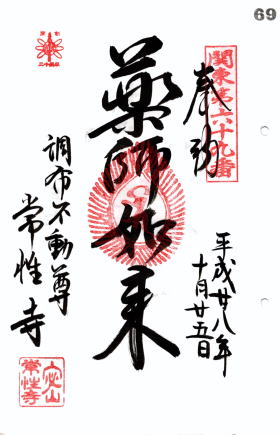 69
関東第六十九番
奉納
平成廿八年
十月廿五日
薬師如来
調布不動尊
常性寺
常性寺